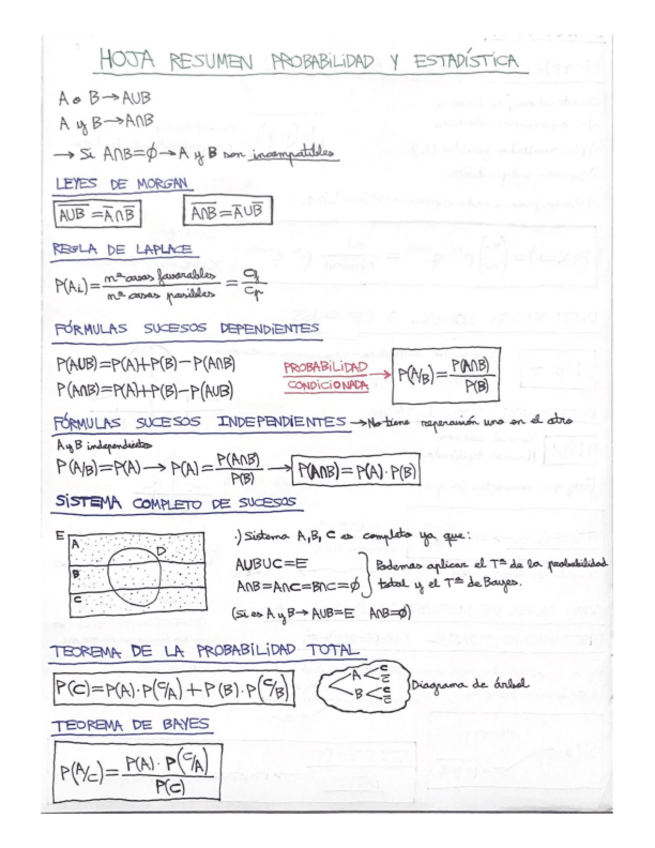 HOJA RESUMEN PROBABILIDAD Y ESTADÍSTICA
A o B→A∪B
A y B→A∩B
→ Si A∩B=∅→A y B son incompatibles
LEYES DE MORGAN
A̅∪̅B̅ = A̅∩B̅    A̅∩̅B̅ = A̅∪B̅
REGLA DE LAPLACE
P(Ai) = nº casos favorables / nº casos posibles = Cf / Cp
FÓRMULAS SUCESOS DEPENDIENTES
P(A∪B)=P(A)+P(B)−P(A∩B)
P(A∩B)=P(A)+P(B)−P(A∪B)
PROBABILIDAD CONDICIONADA → P(A/B) = P(A∩B) / P(B)
FÓRMULAS SUCESOS INDEPENDIENTES → No tiene repercusión uno en el otro
A y B independientes
P(A/B)=P(A) → P(A) = P(A∩B) / P(B) → P(A∩B) = P(A)·P(B)
SISTEMA COMPLETO DE SUCESOS
E
A
D
B
C
·) Sistema A, B, C es completo ya que:
A∪B∪C=E
A∩B=A∩C=B∩C=∅
Podemos aplicar el Tª de la probabilidad
total y el Tª de Bayes.
(Si es A y B→ A∪B=E A∩B=∅)
TEOREMA DE LA PROBABILIDAD TOTAL
P(C)=P(A)·P(C/A) + P(B)·P(C/B)
A < C C̅
B < C C̅
Diagrama de árbol
TEOREMA DE BAYES
P(A/C) = P(A)·P(C/A) / P(C)